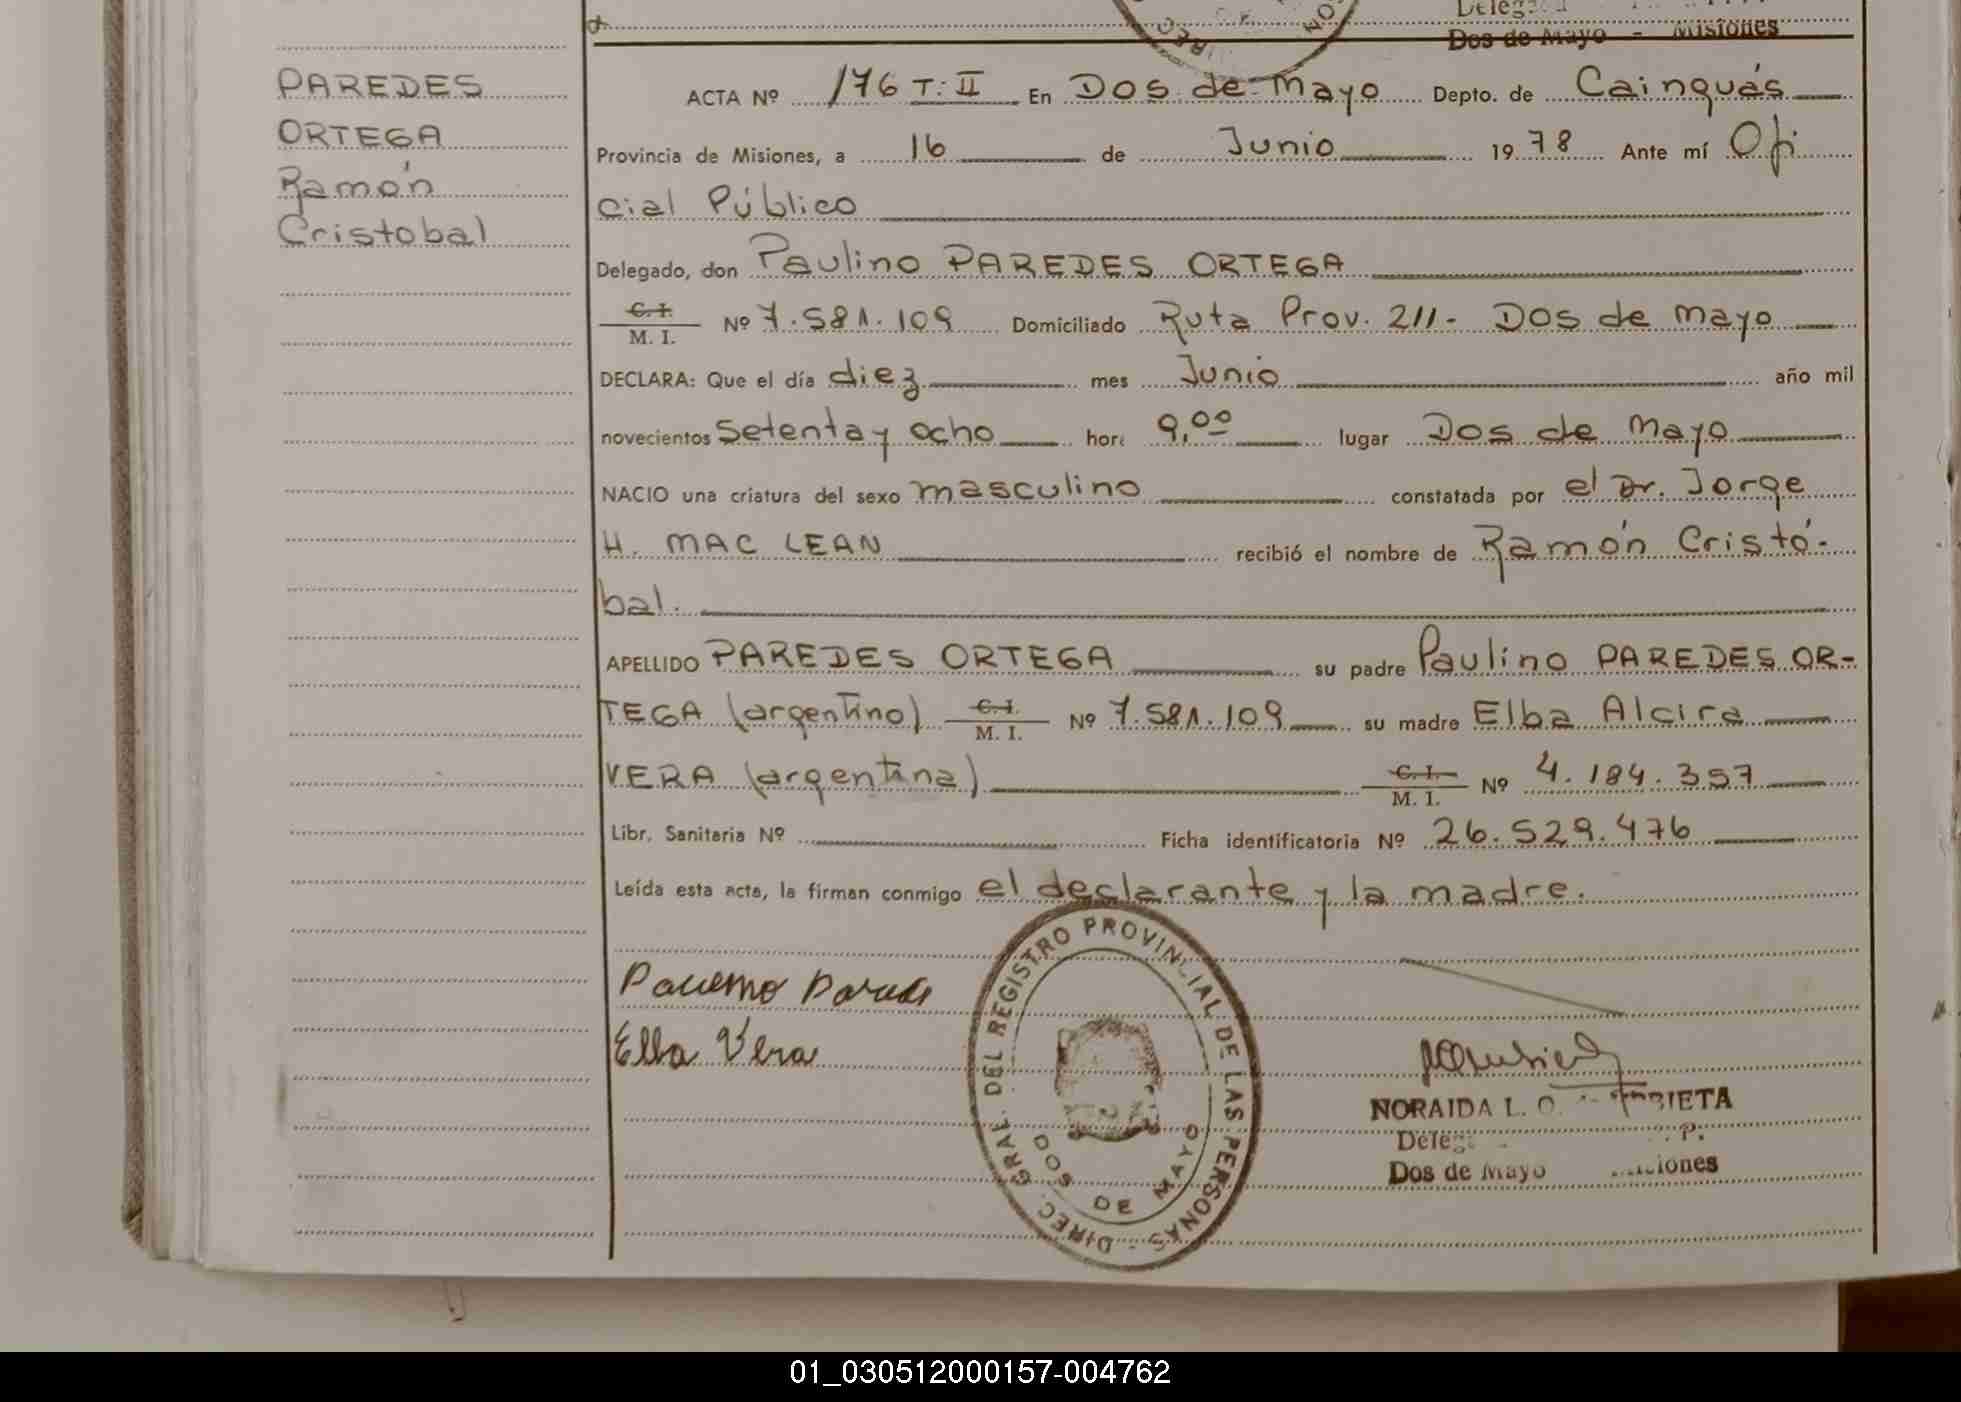 Dos de Mayo - Misiones
PAREDES
ORTEGA
Ramón
Cristobal
ACTA Nº 176 T: II En Dos de Mayo Depto. de Cainguás
Provincia de Misiones, a 16 de Junio 1978 Ante mí Ofi
cial Público
Delegado, don Paulino PAREDES ORTEGA
C.I. M. I. Nº 7.581.109 Domiciliado Ruta Prov. 211- Dos de mayo
DECLARA: Que el día diez mes Junio año mil
novecientos setenta y ocho hora 9,00 lugar Dos de Mayo
NACIO una criatura del sexo masculino constatada por el Dr. Jorge
H. MAC LEAN recibió el nombre de Ramón Cristó-
bal.
APELLIDO PAREDES ORTEGA su padre Paulino PAREDES OR-
TEGA (argentino) C.I. M. I. Nº 7.581.109 su madre Elba Alcira
VERA (argentina) C.I. M. I. Nº 4.184.357
Libr. Sanitaria Nº Ficha identificatoria Nº 26.529.476
Leída esta acta, la firman conmigo el declarante y la madre.
DIREC. GRAL. DEL REGISTRO PROVINCIAL DE LAS PERSONAS -
DOS DE MAYO
Elba Vera
NORAIDA L. O.
Dos de Mayo
01_030512000157-004762